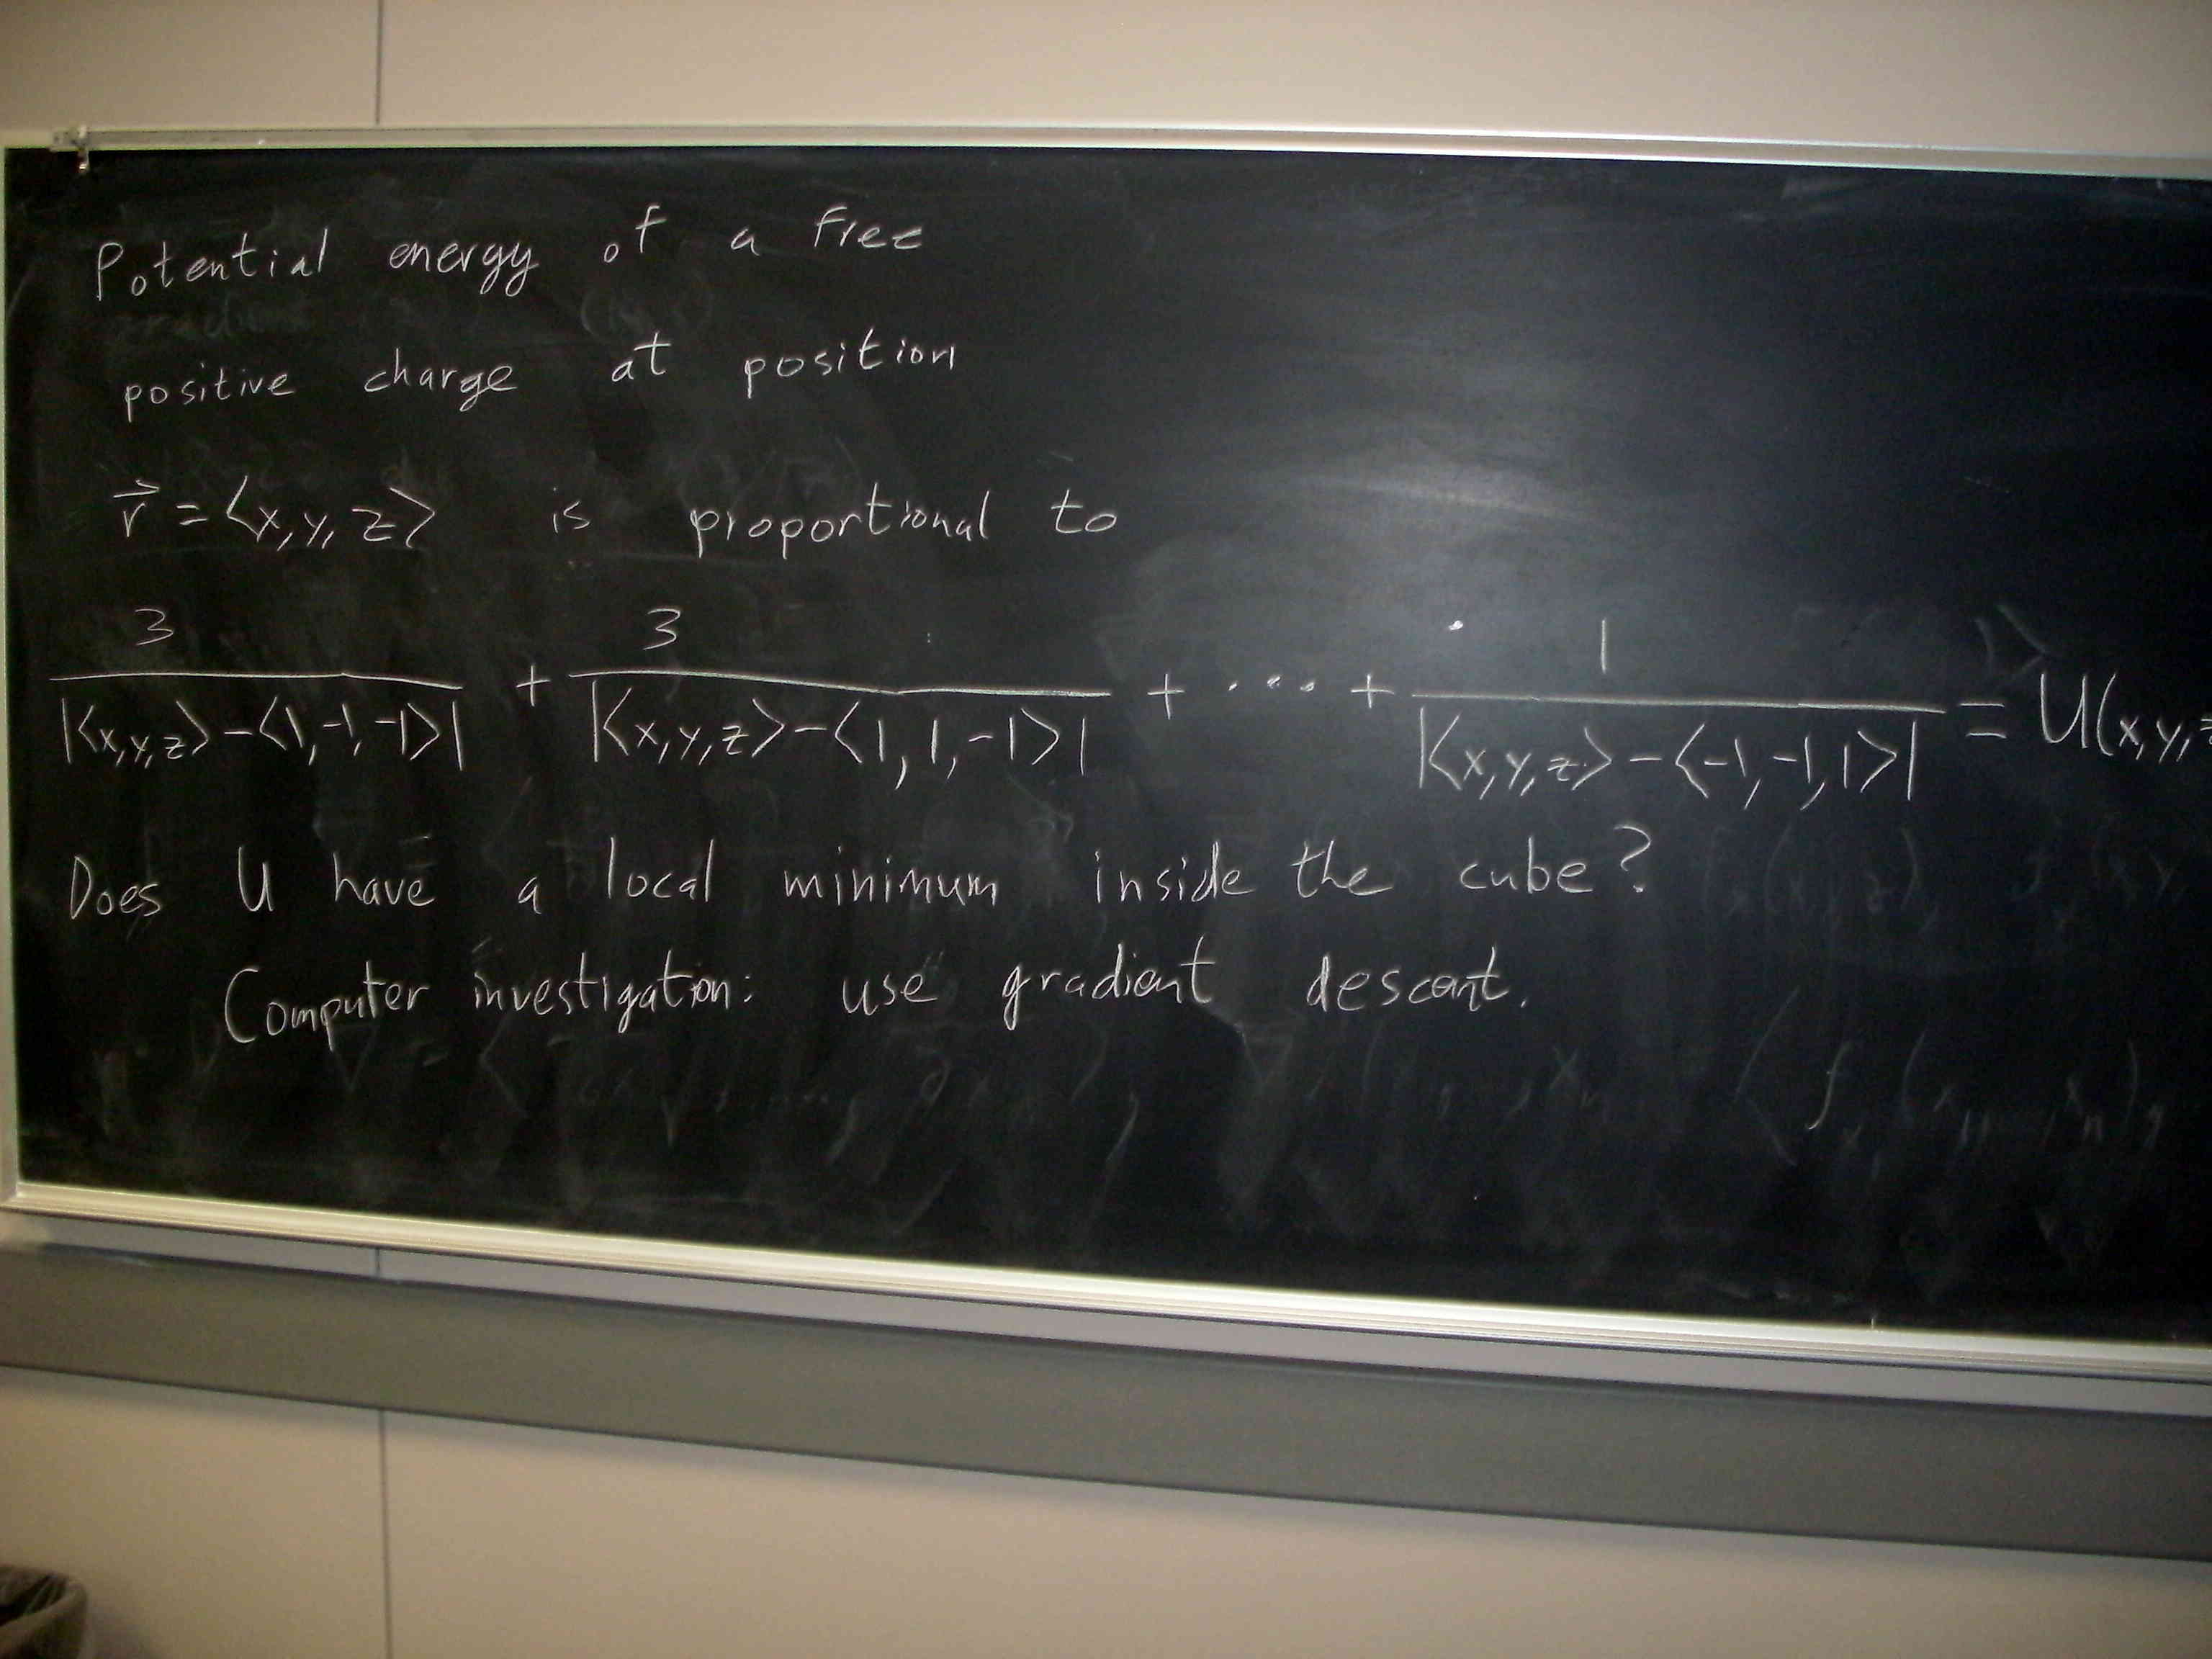 Potential energy of a free
positive charge at position
r⃗ = <x, y, z> is proportional to
3/|<x,y,z> - <1,-1,-1>| + 3/|<x,y,z> - <1,1,-1>| + ... + 1/|<x,y,z> - <-1,-1,1>| = U(x,y,z
Does U have a local minimum inside the cube?
Computer investigation: use gradient descent.